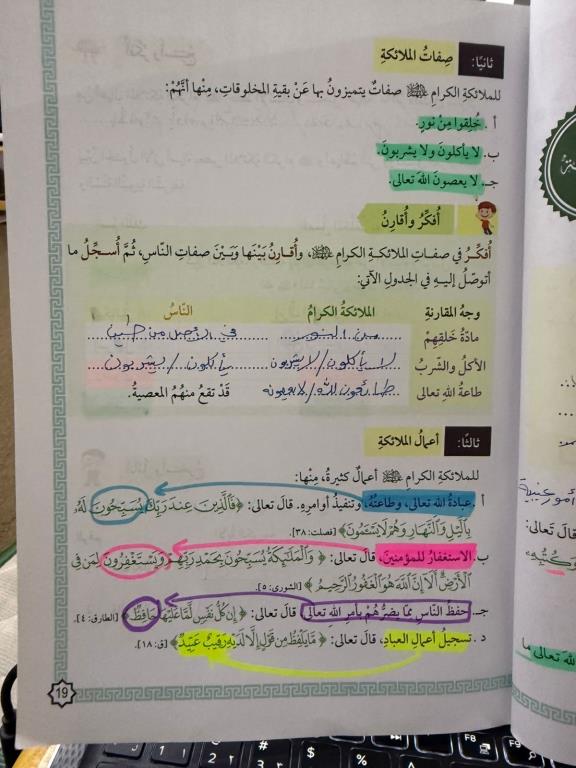 ثانيًا: صِفاتُ الملائكةِ
للملائكةِ الكرامِ ﷺ صفاتٌ يتميزونُ بها عَنْ بقيةِ المخلوقاتِ، مِنْها أنَّهُمْ:
أ . خُلِقوا مِنْ نورٍ.
ب. لا يأكلونَ ولا يشربونَ.
جـ. لا يعصونَ اللهَ تعالى.
أُفكِّرُ وأُقارِنُ
أُفكِّرُ في صفاتِ الملائكةِ الكرامِ ﷺ، وأُقارِنُ بَيْنَها وَبَيْنَ صفاتِ النّاسِ، ثُمَّ أُسجِّلُ ما
أتوصّلُ إليهِ في الجدولِ الآتي:
وجهُ المقارنةِ الملائكةُ الكرامُ النّاسُ
مادّةُ خَلقِهِمْ من النور في الأصل من طين
الأكلُ والشّربُ لا يأكلون/لا يشربون يأكلون/يشربون
طاعةُ اللهِ تعالى طائعون لله/ قَدْ تقعُ منهُمُ المعصيةُ.
ثالثًا: أعمالُ الملائكةِ
للملائكةِ الكرامِ ﷺ أعمالٌ كثيرةٌ، مِنْها:
أ . عبادةُ اللهِ تعالى، وطاعتُهُ، وتنفيذُ أوامرِهِ. قالَ تعالى: ﴿فَٱلَّذِينَ عِندَ رَبِّكَ يُسَبِّحُونَ لَهُۥ
بِٱلَّيْلِ وَٱلنَّهَارِ وَهُمْ لَا يَسْـَٔمُونَ﴾ [فصلت: ٣٨].
ب. الاستغفارُ للمؤمنينَ، قالَ تعالى: ﴿وَٱلْمَلَٰٓئِكَةُ يُسَبِّحُونَ بِحَمْدِ رَبِّهِمْ وَيَسْتَغْفِرُونَ لِمَن فِى
ٱلْأَرْضِ أَلَآ إِنَّ ٱللَّهَ هُوَ ٱلْغَفُورُ ٱلرَّحِيمُ﴾ [الشورى: ٥].
جـ. حفظُ النّاسِ ممّا يضرُّهُمْ بأمرِ اللهِ تعالى، قالَ تعالى: ﴿إِن كُلُّ نَفْسٍ لَّمَّا عَلَيْهَا حَافِظٌ﴾ [الطارق: ٤].
د . تسجيلُ أعمالِ العبادِ، قالَ تعالى: ﴿مَّا يَلْفِظُ مِن قَوْلٍ إِلَّا لَدَيْهِ رَقِيبٌ عَتِيدٌ﴾ [ق: ١٨].
19
أمور غيبية
قالَ تعالى:
وَكُتُبِهِ
اللهُ تعالى ما
F8
F9
#
$
%